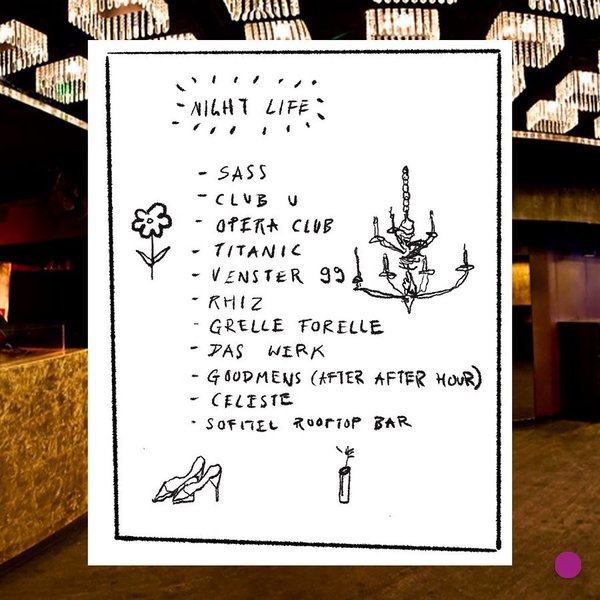 NIGHT LIFE
- SASS
- CLUB U
- OPERA CLUB
- TITANIC
- VENSTER 99
- RHIZ
- GRELLE FORELLE
- DAS WERK
- GOODMENS (AFTER AFTER HOUR)
- CELESTE
- SOFITEL ROOFTOP BAR